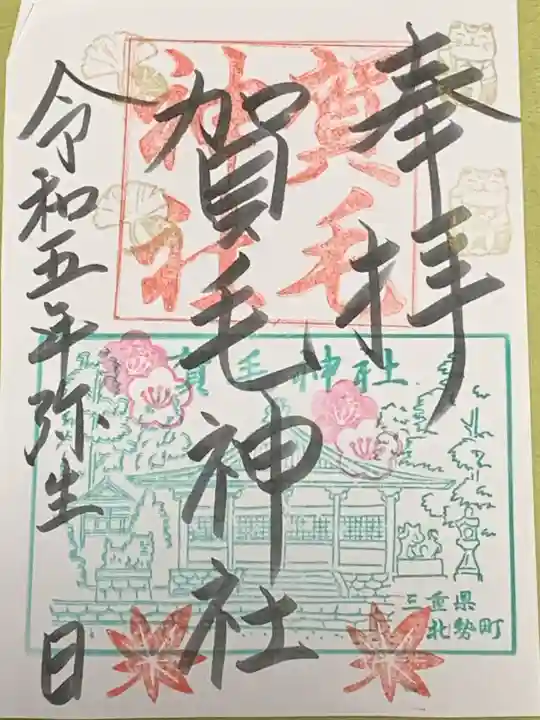 奉拝
賀毛神社
令和五年弥生 日
賀毛
神社
賀毛神社
三重県
北勢町